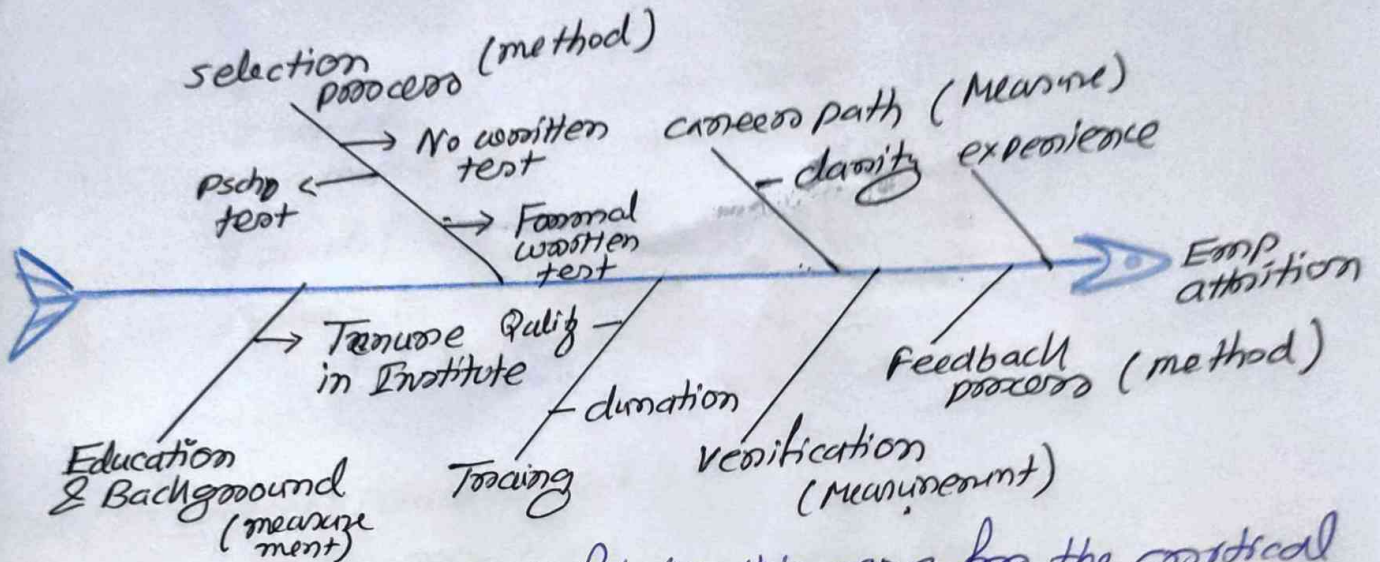 selection
process (method)
No written
test
Pscho
test
Formal
written
test
career path (Measure)
clarity
experience
Emp
attrition
Tenure
in Institute
Quality
duration
Feedback
process (method)
Education
& Background
(measure
ment)
Tracing
verification
(Measurement)
for the critical